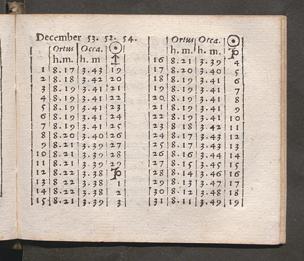 December 53. 52. 54.
Ortus Occa. ☉
h.m. h. m ♐
1 8.17 3.43 19
2 8.18 3.42 20
3 8.19 3.41 21
4 8.19 3.41 22
5 8.19 3.41 23
6 8.19 3.41 24
7 8.19 3.41 25
8 8.20 3.40 26
9 8.21 3.39 27
10 8.21 3.39 28
11 8.21 3.39 29
12 8.22 3.38 ♑
13 8.22 3.38 1
14 8.22 3.38 2
15 8.21 3.39 3
Ortus Occa. ☉
h. m. h. m. ♑
16 8.21 3.39 4
17 8.20 3.40 5
18 8.19 3.41 6
19 8.19 3.41 7
20 8.19 3.41 8
21 8.19 3.41 9
22 8.19 3.41 10
23 8.18 3.42 11
24 8.17 3.43 12
25 8.17 3.43 13
26 8.16 3.44 14
27 8.15 3.45 15
28 8.14 3.46 16
29 8.13 3.47 17
30 8.12 3.48 18
31 8.11 3.49 19